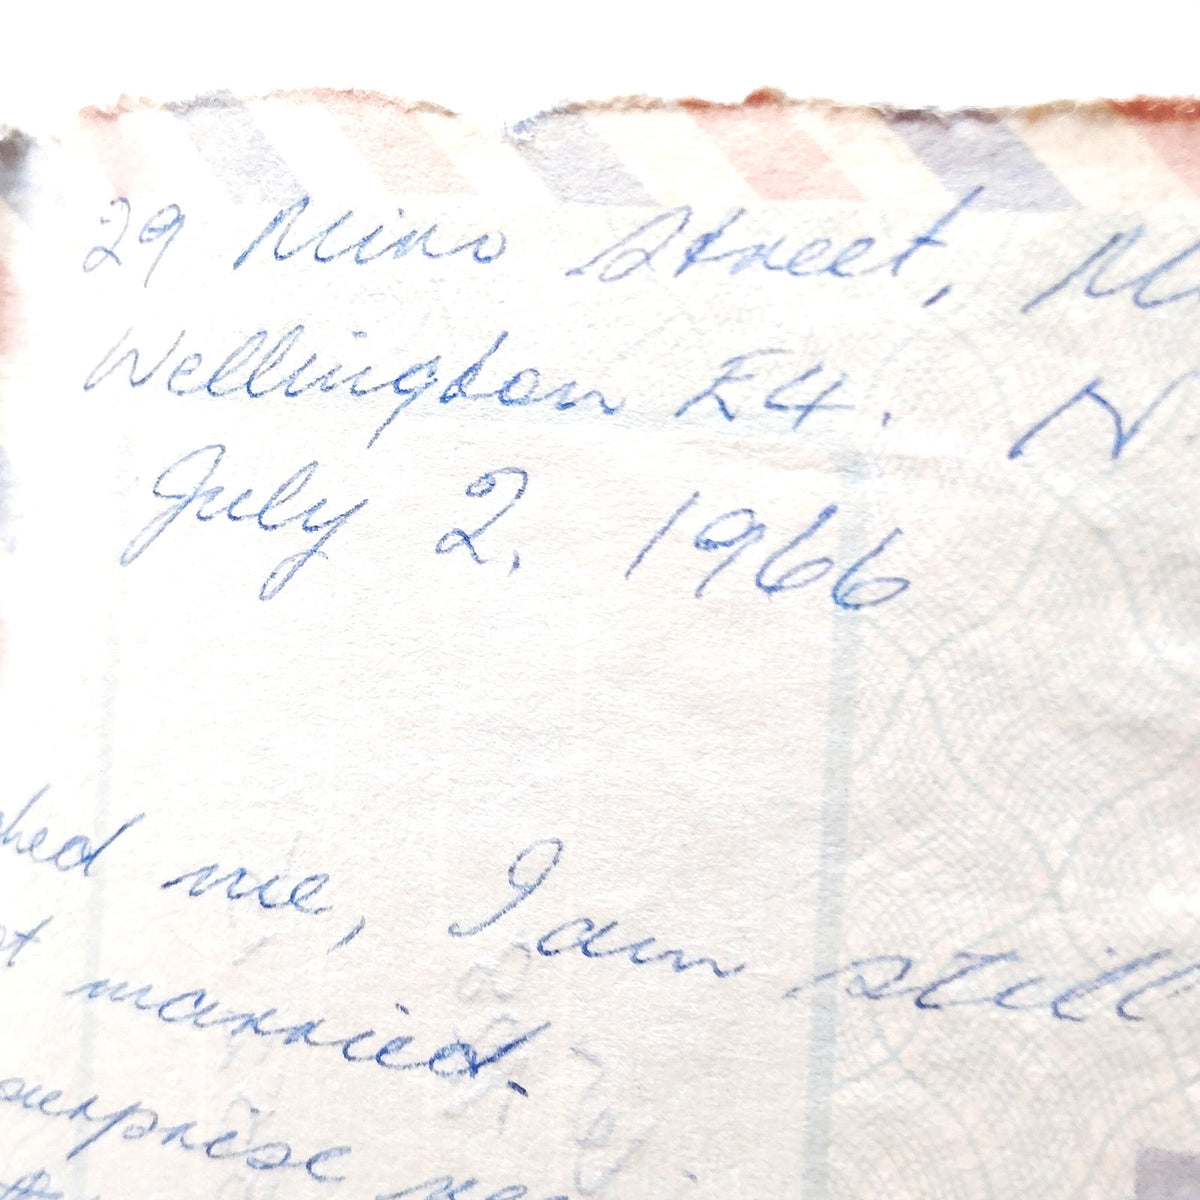 29 Miro Street, M
Wellington E4. N.
July 2, 1966
ched me, I am still
ot married.
surprise